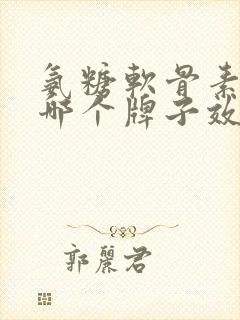 氨糖軟骨素
哪个牌子效
郭麗君